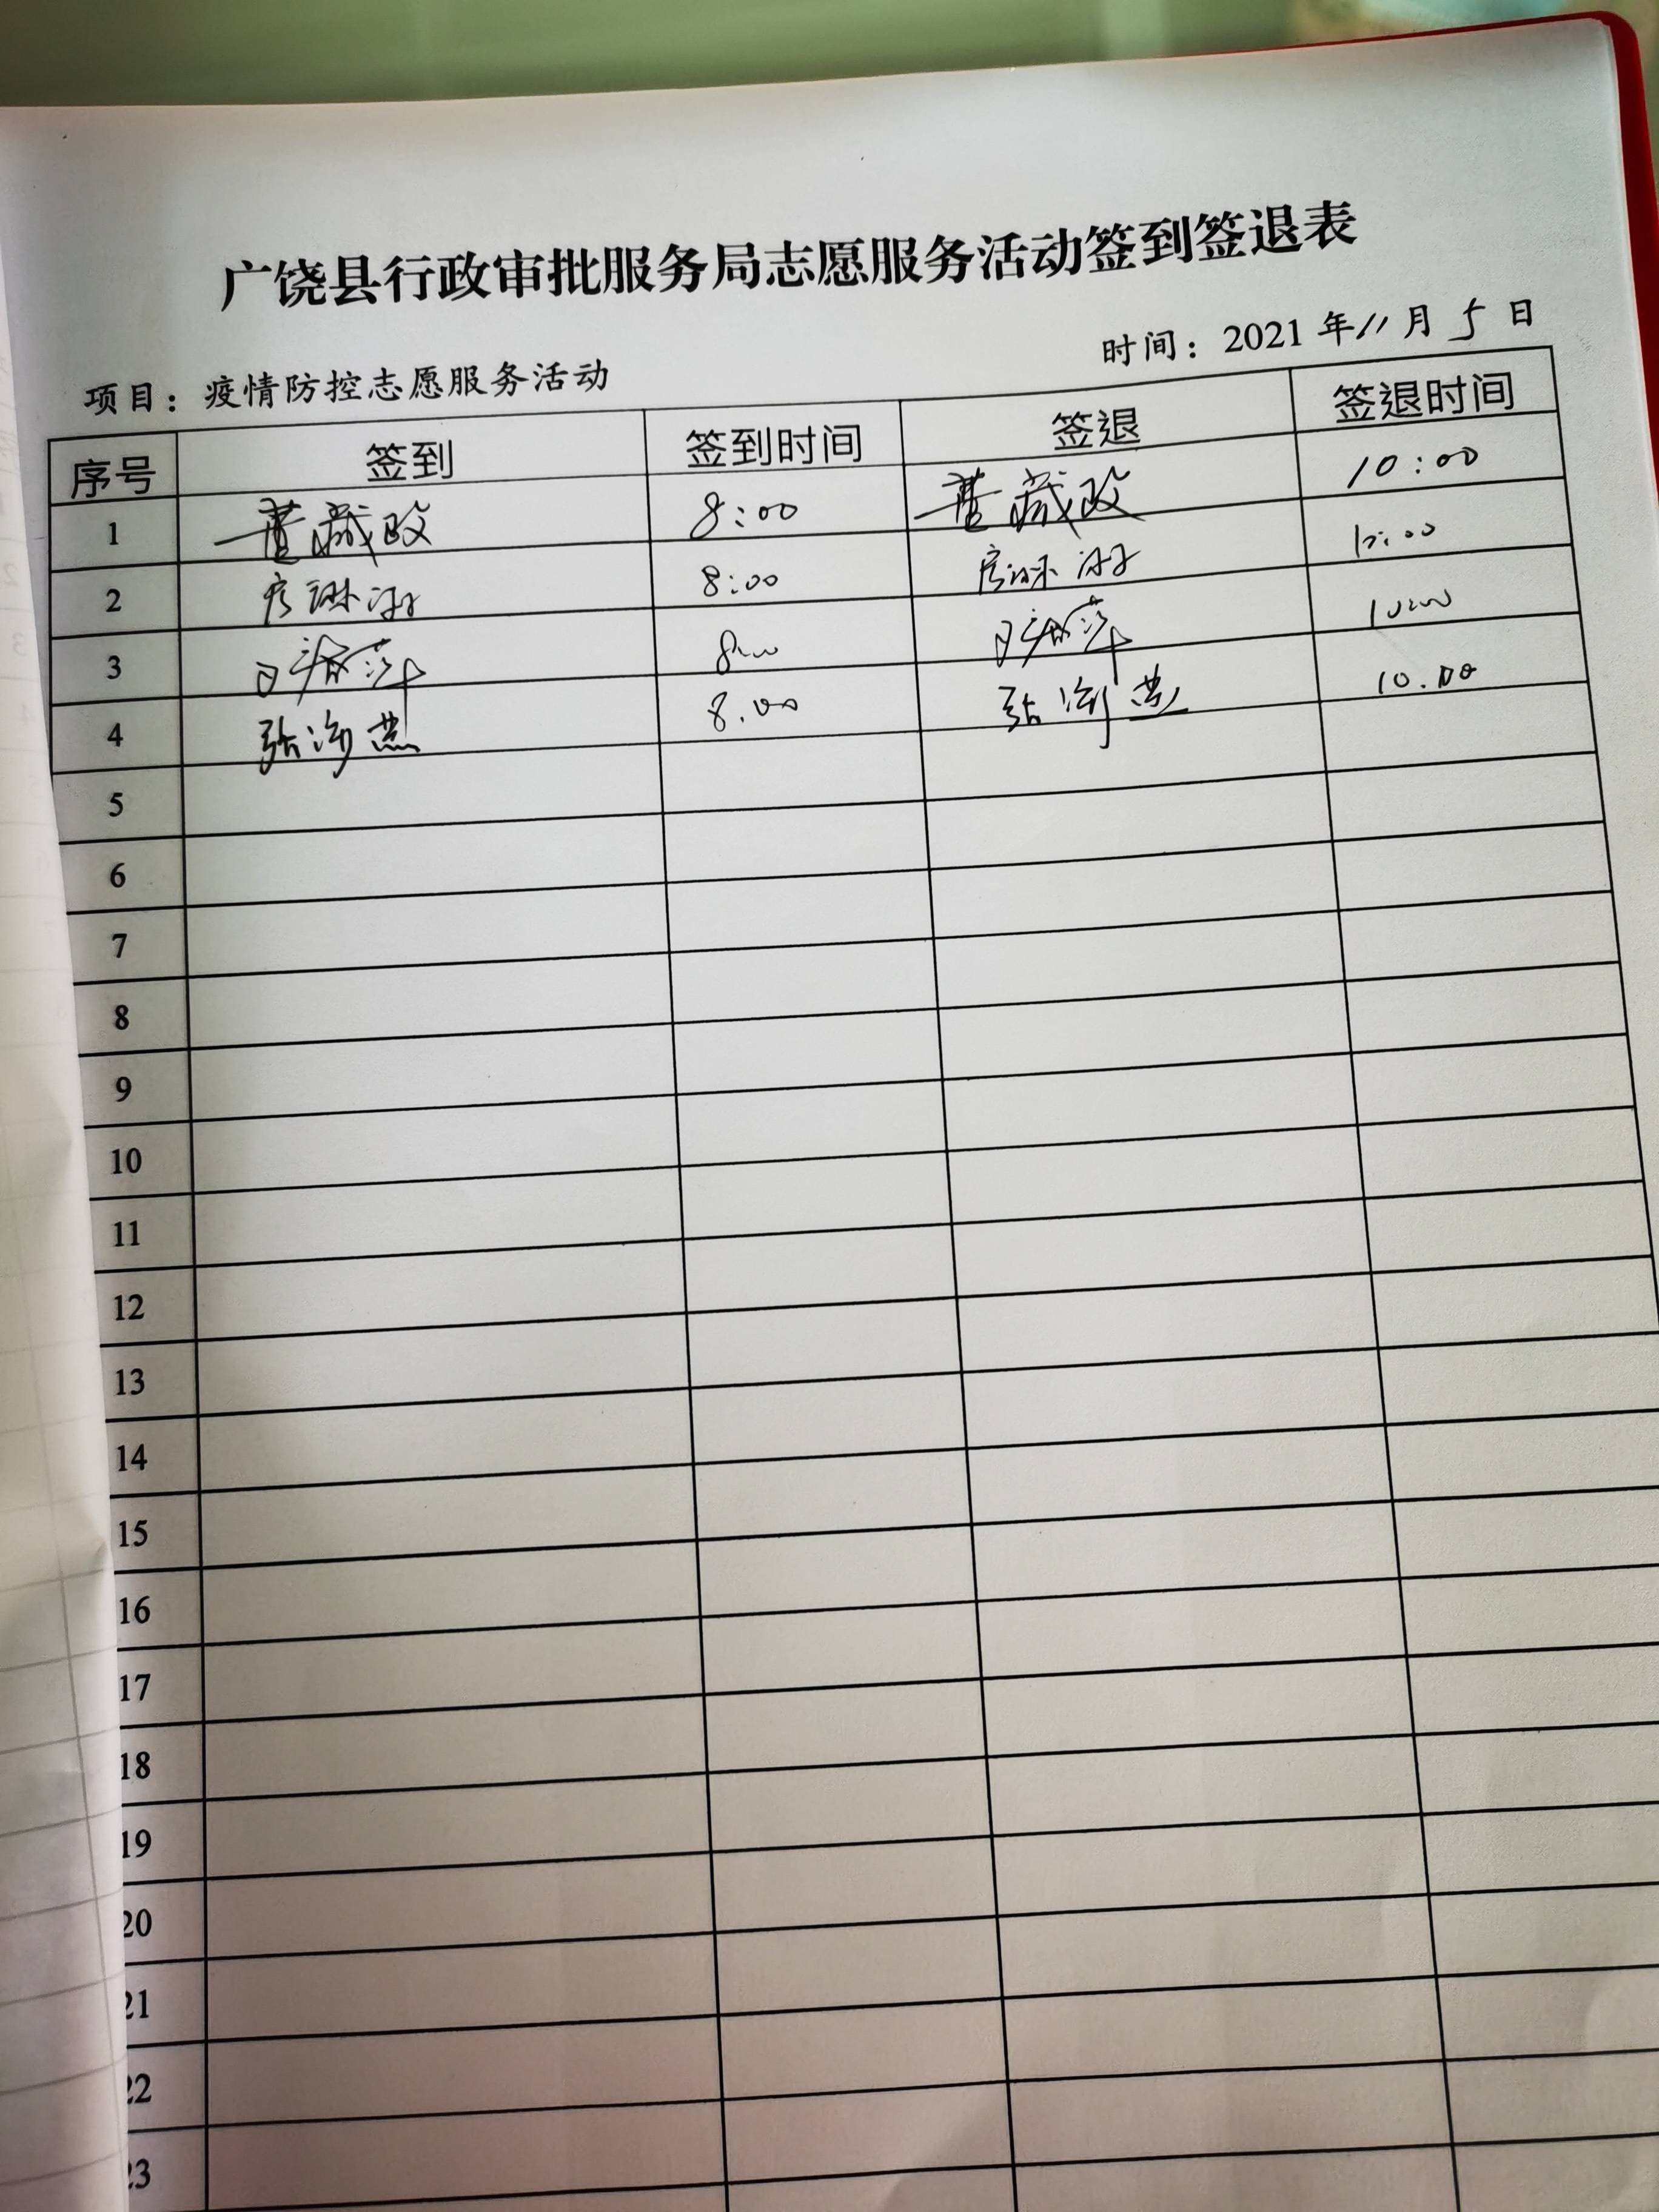 广饶县行政审批服务局志愿服务活动签到签退表
项目：疫情防控志愿服务活动
时间：2021年11月5日
序号 签到 签到时间 签退 签退时间
1 董藏政 8:00 董藏政 10:00
2 8:00 10:00
3 8:00 10:00
4 张海燕 8:00 张海燕 10:00
5
6
7
8
9
10
11
12
13
14
15
16
17
18
19
20
21
22
23